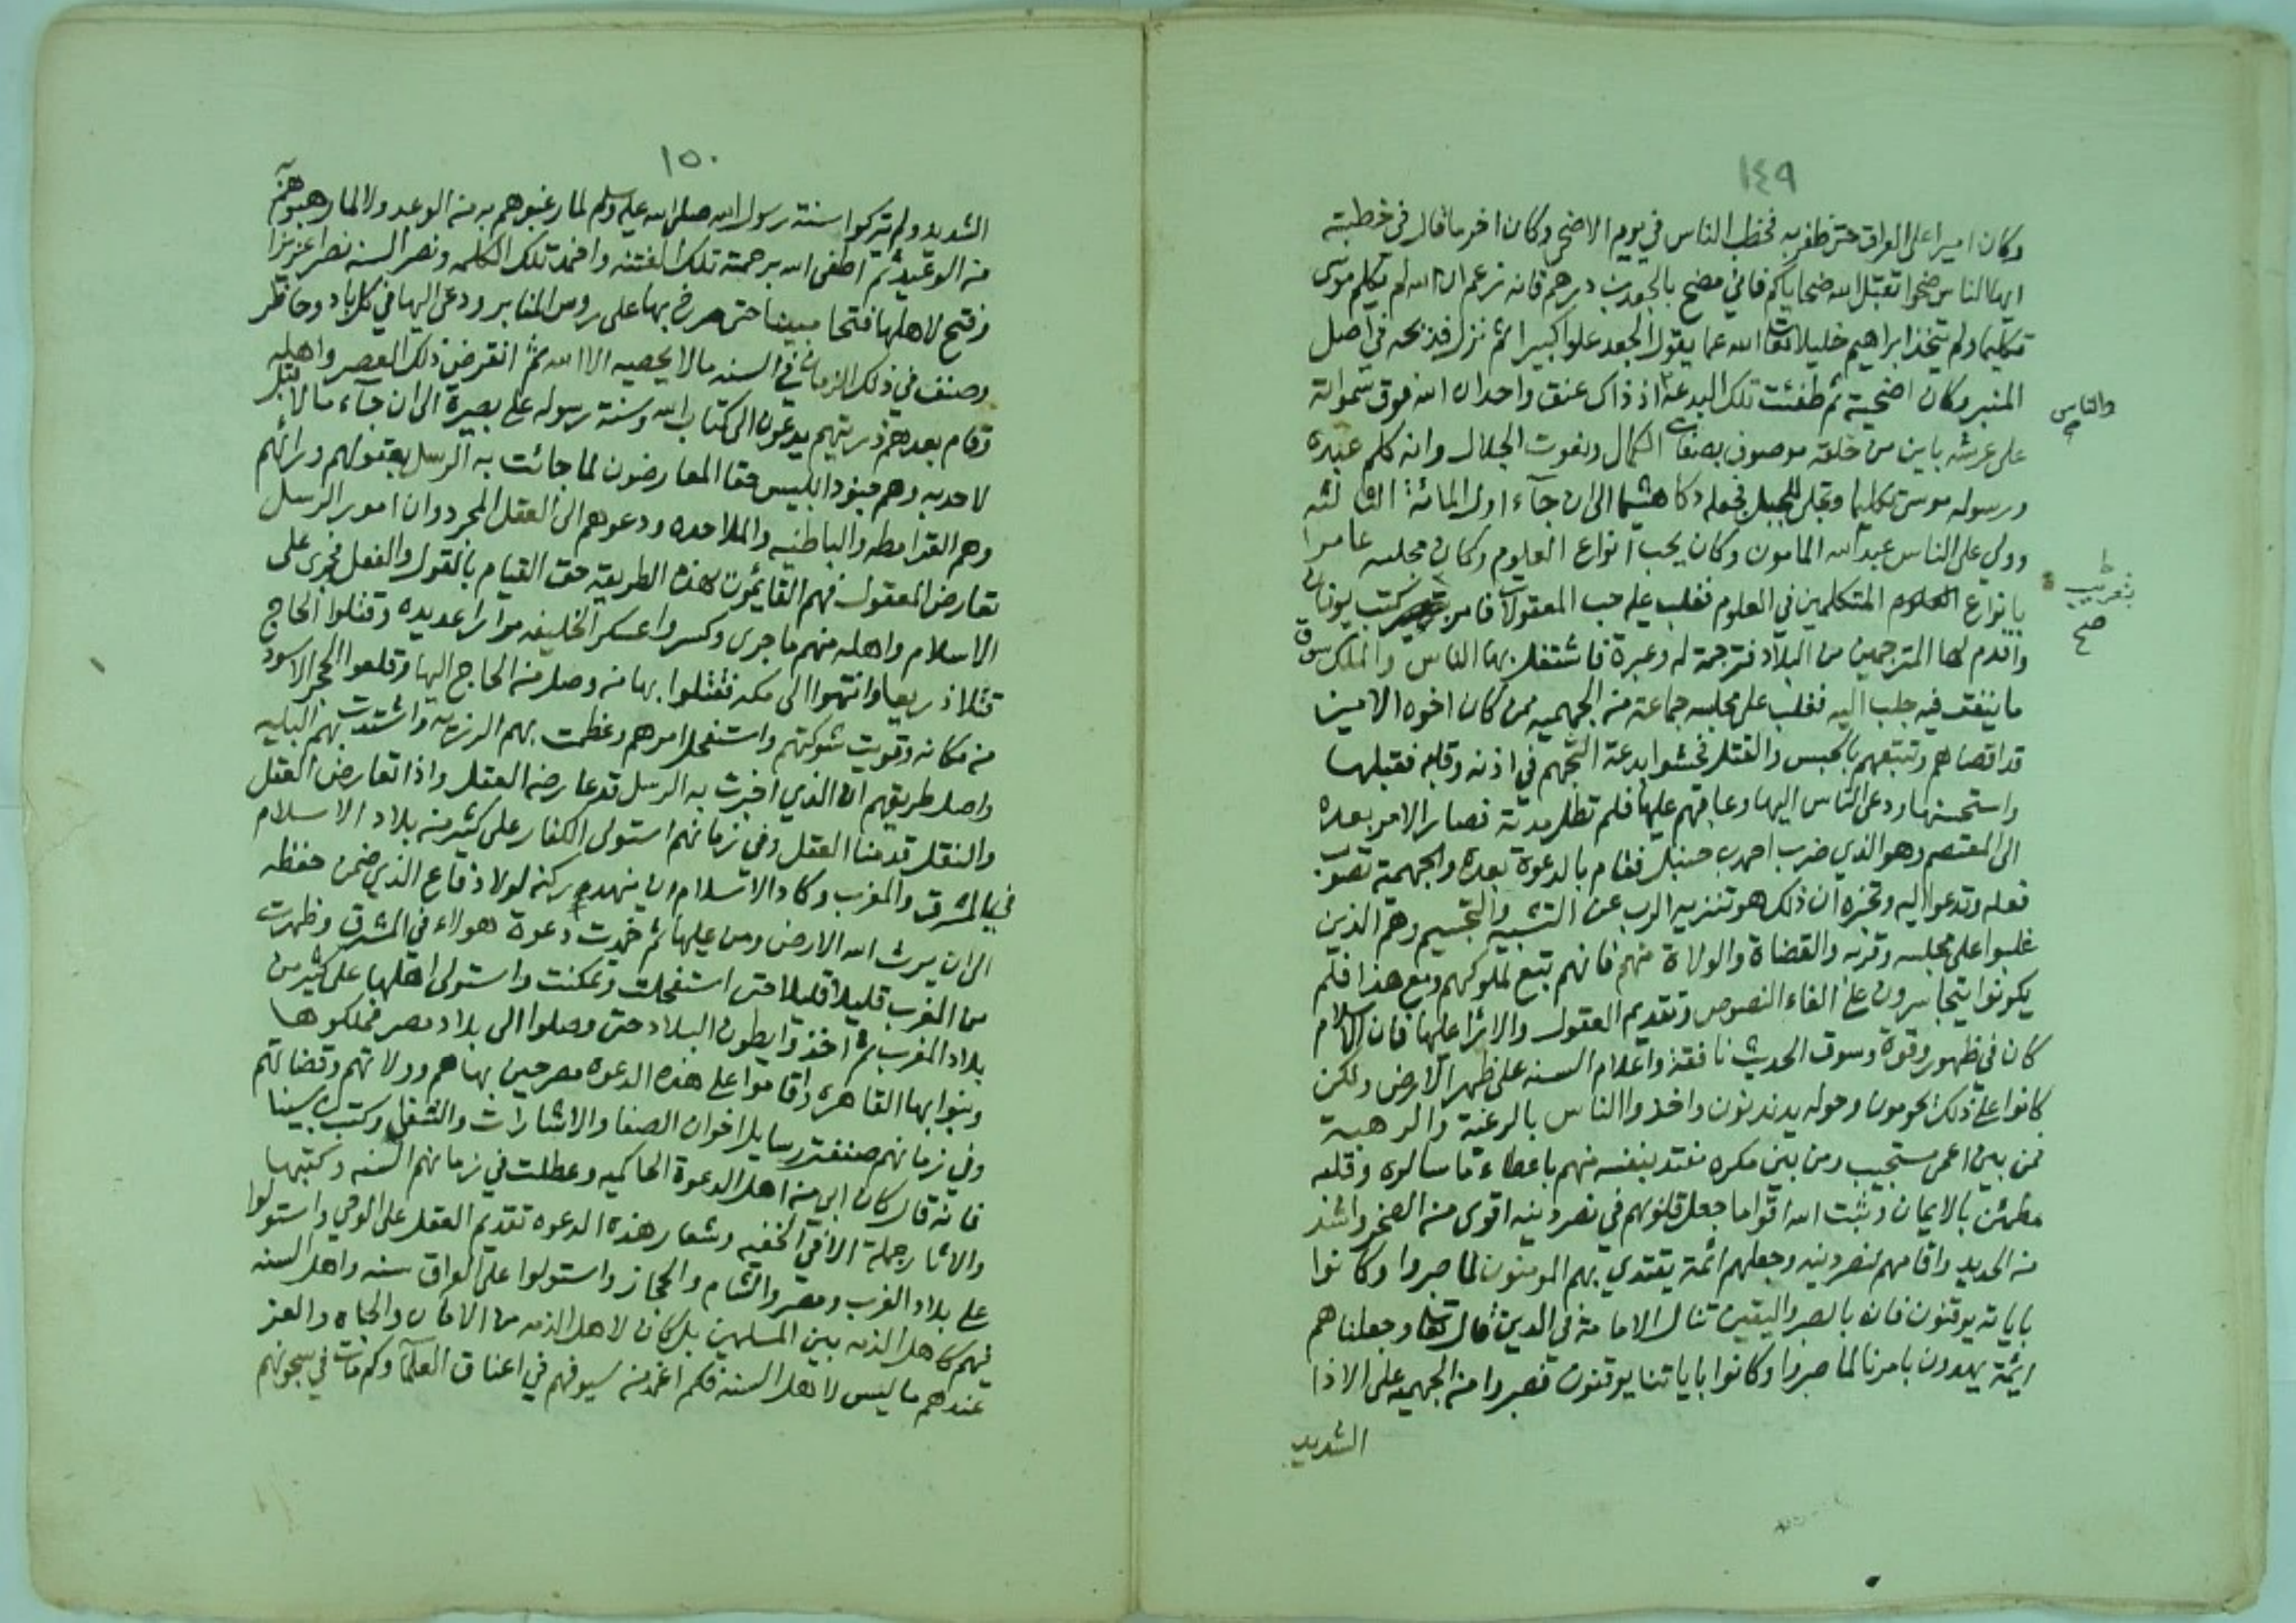 ١٤٩
وكان اميرا على العراق حتى ظفر به فخطب الناس في يوم الاضحى وكان اخر ما قال في خطبته
ايها الناس ضحوا تقبل الله ضحاياكم فاني مضح بالجعد بن درهم فانه زعم ان الله لم يكلم موسى
تكليما ولم يتخذ ابراهيم خليلا تعالى الله عما يقول الجعد علوا كبيرا ثم نزل فذبحه في اصل
المنبر وكان اضحية ثم طفئت تلك البدعة اذ ذاك عنق واحد ان الله فوق سمواته
والناس
على عرشه باين من خلقه موصوف بصفات الكمال ونعوت الجلال وانه كلم عبده
ورسوله موسى تكليما وتجلى للجبل فجعله دكا هشيما الى ان جآء اول المائة الثالثه
وولي على الناس عبد الله المامون وكان يحب انواع العلوم وكان مجلسه عامرا
بانواع العلوم المتكلمين في العلوم فغلب عليه حب المعقولات فامر كتب يونان
بتعريب
صح
واقدم لها المترجمين من البلاد فترجمت له وعبرة فاشتغل بها الناس والملك سوق
ما ينفق فيه جلب اليه فغلب على مجلسه جماعة من الجهميه ممن كان اخوه الامين
قد اقصاهم وتتبعهم بالحبس والقتل فحشوا بدعة التجهم في اذنه وقلبه فقبلها
واستحسنها ودعى الناس اليها وعاقبهم عليها فلم تطل مدته فصار الامر بعده
الى المعتصم وهو الذي ضرب احمد بن حنبل فقام بالدعوة بعده والجهمية تصوب
فعله وتدعوا اليه وتخبره ان ذلك هو تنزيه الرب عن التشبيه والتجسيم وهم الذين
غلبوا على مجلسه وقربه والقضاة والولاة منهم فانهم تبع لملوكهم ومع هذا فلم
يكونوا يتجاسرون على الغاء النصوص وتقديم العقول والارا عليها فان الاسلام
كان في ظهور وقوة وسوق الحديث نافقة واعلام السنه على ظهر الارض ولكن
كانوا على ذلك يحومون وحوله يدندنون واخذوا الناس بالرغبة والرهبة
فمن بين اعمى مستجيب ومن بين مكره مفتد بنفسه منهم باعطاء ما سالوه وقلبه
مطمئن بالايمان وثبت الله اقواما جعل قلوبهم في نصر دينه اقوى من الصخر واشد
من الحديد واقامهم لنصر دينه وجعلهم ائمة يقتدي بهم المومنون لما صبروا وكانوا
باياته يوقنون فانه بالصبر واليقين تنال الامامة في الدين قال تعالى وجعلناهم
ايئمة يهدون بامرنا لما صبروا وكانوا باياتنا يوقنون فصبروا من الجهميه على الاذا
الشديد
١٥٠
الشديد ولم يتركوا سنة رسول الله صلى الله عليه وسلم لما رغبوهم به من الوعد ولا لما رهبوهم به
من الوعيد ثم اطفى الله برحمته تلك الفتنه واخمد تلك الكلمه ونصر السنه نصرا عزيزا
وفتح لاهلها فتحا مبينا حتى صرخ بها على روس المنابر ودعى اليها في كل باد وحاضر
وصنف في ذلك الزمان في السنه مالا يحصيه الا الله ثم انقرض ذلك العصر واهله
وقام بعدهم ذريتهم يدعون الى كتاب الله وسنة رسوله على بصيرة الى ان جآء مالا قبل
لاحد به وهم جنود ابليس حقا المعارضون لما جائت به الرسل بعقولهم ورائهم
وهم القرامطه والباطنيه والملاحده ودعوهم الى العقل المجرد وان امور الرسل
تعارض المعقول فهم القايمون بهذه الطريقة حق القيام بالقول والفعل فجرى على
الاسلام واهله منهم ما جرى وكسروا عسكر الخليفه مرارا عديده وقتلوا الحاج
قتلا ذريعا وانتهوا الى مكه فقتلوا بها من وصل من الحاج اليها وقلعوا الحجر الاسود
من مكانه وقويت شوكتهم واستفحل امرهم وعظمت بهم الرزيه واشتدت بهم البليه
واصل طريقهم ان الذي اخبرت به الرسل قد عارضه العقل واذا تعارض العقل
والنقل قدمنا العقل وفي زمانهم استولى الكفار على كثير من بلاد الاسلام
في المشرق والمغرب وكاد الاسلام ان ينهدم ركنه لولا دفاع الذي ضمن حفظه
الى ان يرث الله الارض ومن عليها ثم خمدت دعوة هولاء في المشرق وظهرت
من الغرب قليلا قليلا حتى استفحلت وتمكنت واستولى اهلها على كثير من
بلاد المغرب ثم اخذوا يطون البلاد حتى وصلوا الى بلاد مصر فملكوها
وبنوا بها القاهره واقاموا على هذه الدعوه مصرحين بها هم وولاتهم وقضاتهم
وفي زمانهم صنفت رسايل اخوان الصفا والاشارات والشفا وكتب ابن سينا
فانه قال كان ابي من اهل الدعوة الحاكميه وعطلت في زمانهم السنه وكتبها
والاثار جملة الا في الخفيه وشعار هذه الدعوه تقديم العقل على الوحي واستولوا
على بلاد الغرب ومصر والشام والحجاز واستولوا على العراق سنه واهل السنه
فيهم كاهل الذمه بين المسلمين بل كان لاهل الذمه من الامان والجاه والعز
عندهم ما ليس لاهل السنه فكم اغمد من سيوفهم في اعناق العلمآ وكم مات في سجونهم